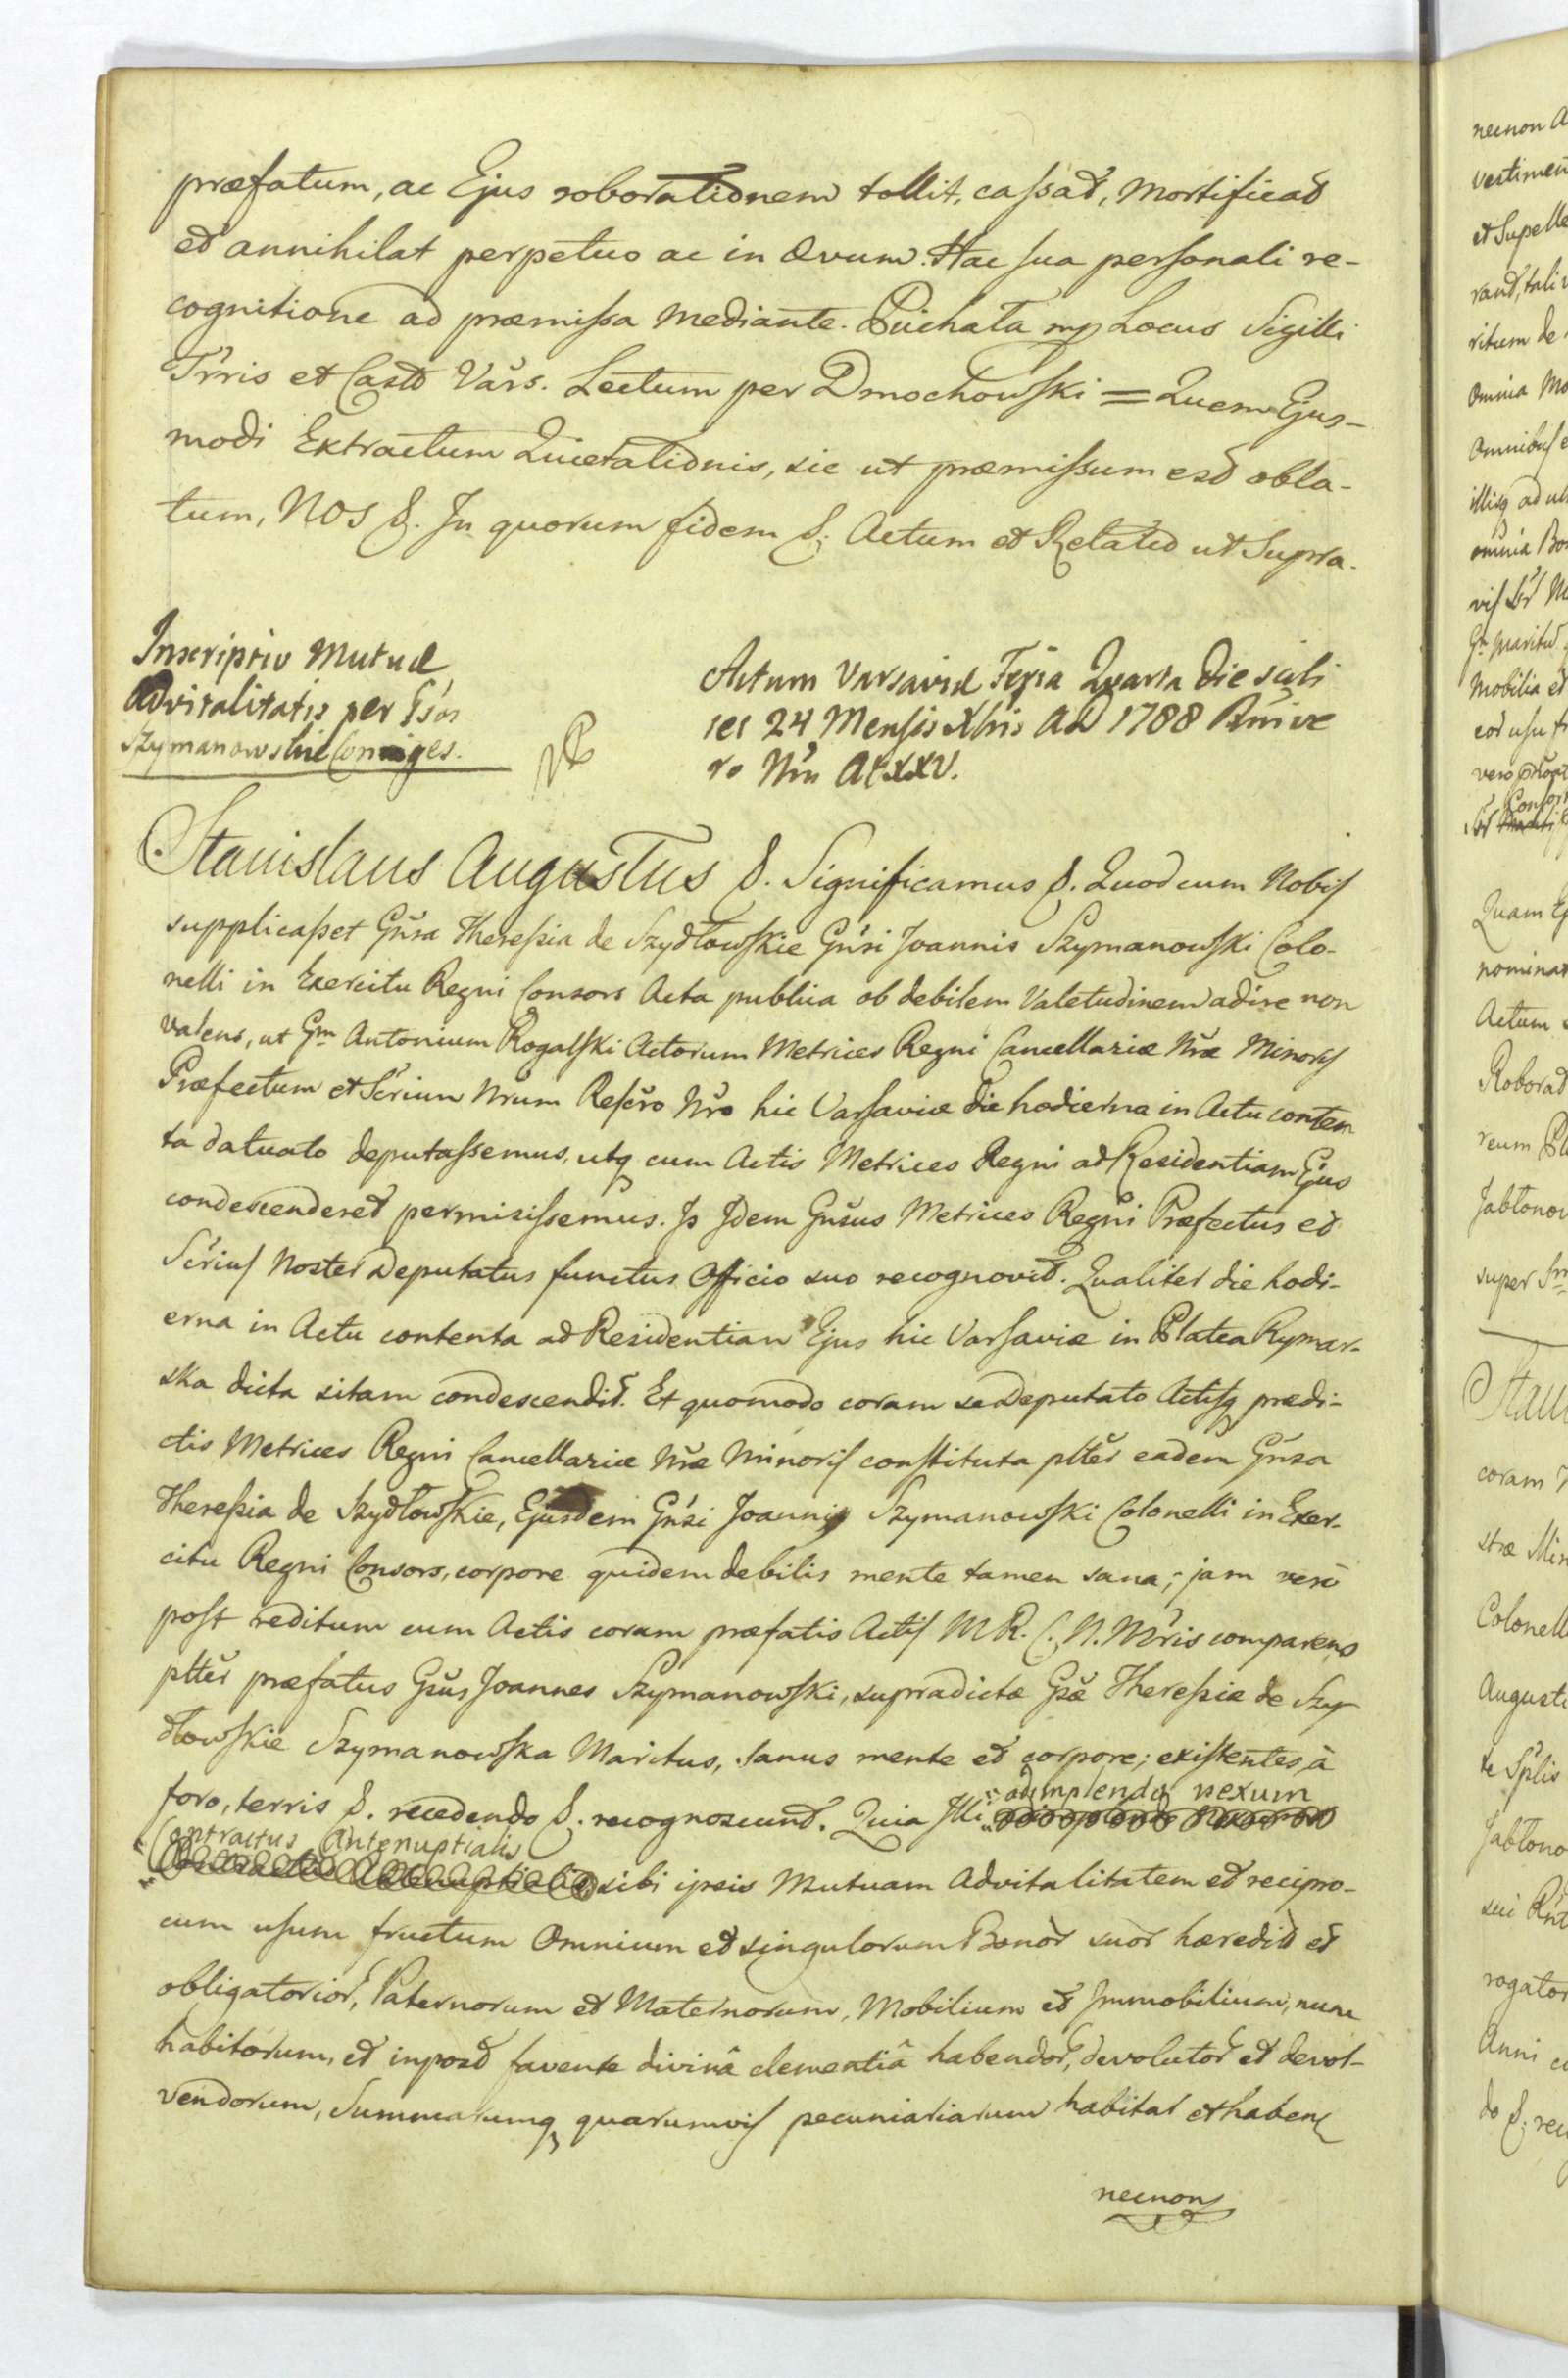 præfatum, ac Ejus roborationem tollit, cassat, Mortificat
et annihilat perpetuo ac in ævum. Hac sua personali re-
cognitione ad præmissa mediante. Puchała mp Locus Sigilli
Trris et Castr Vars. Lectum per Dmochowski = Quem Ejus-
modi Extractum Quietationis, sic ut præmissum est obla-
tum, NOS &. In quorum fidem &. Actum et Relatio ut Supra.
Inscriptio Mutuæ
Advitalitatis per Gsos
Szymanowskie Conniges.
Actum Varsaviæ Feria Quarta die scili
cet 24 Mensis Xbris AD 1788 Rni ve
ro Nri AXXV.
Stanislaus Augustus &. Significamus &. Quod cum Nobis
supplicasset Gnsa Theressia de Szydłowskie Gnsi Joannis Szymanowski Colo-
nelli in Exercitu Regni Consors Acta publica ob debilem Valetudinem adire non
valens, ut Gm Antonium Rogalski Actorum Metrices Regni Cancellariæ Nræ Minoris
Præfectum et Scrium Nrum Rescro Nro hic Varsaviæ die hodierna in Actu conten
ta datuato deputassemus, utq cum Actis Metrices Regni ad Residentiam Ejus
condescenderet permisissemus. Is Idem Gnsus Metrices Regni Præfectus et
Scrius Noster Deputatus functus Officio suo recognovit. Qualiter die hodi-
erna in Actu contenta ad Residentiam Ejus hic Varsaviæ in Platea Rymar-
ska dicta sitam condescendit. Et quomodo coram se Deputato Actisq prædi-
ctis Metrices Regni Cancellariæ Nræ Minoris constituta plter eadem Gnsa
Theressia de Szydłowskie, Ejusdem Gnsi Joannis Szymanowski Colonelli in Exer-
citu Regni Consors, corpore quidem debilis mente tamen sana; jam verò
post reditum cum Actis coram præfatis Actis M R. C. N. Mris comparens
plter præfatus Gsus Joannes Szymanowski, supradictæ Gsæ Theressiæ de Szy
dłowskie Szymanowska Maritus, sanus mente et corpore; existentes, à
foro, terris &. recedendo &. recognoscunt. Quia Illi adimplendo nexum
Contractus Antenuptialis sibi ipsis Mutuam Advitalitatem et recipro-
cum usum fructum Omnium et singulorum Bonor suor hæredit et
obligatorior, Paternorum et Maternorum, Mobilium et Immobilium, nunc
habitorum, et inpost favente divinâ clementiâ habendor, devolutor et devol-
vendorum, Summarumq quarumvis pecuniariarum habitar et haben
necnon